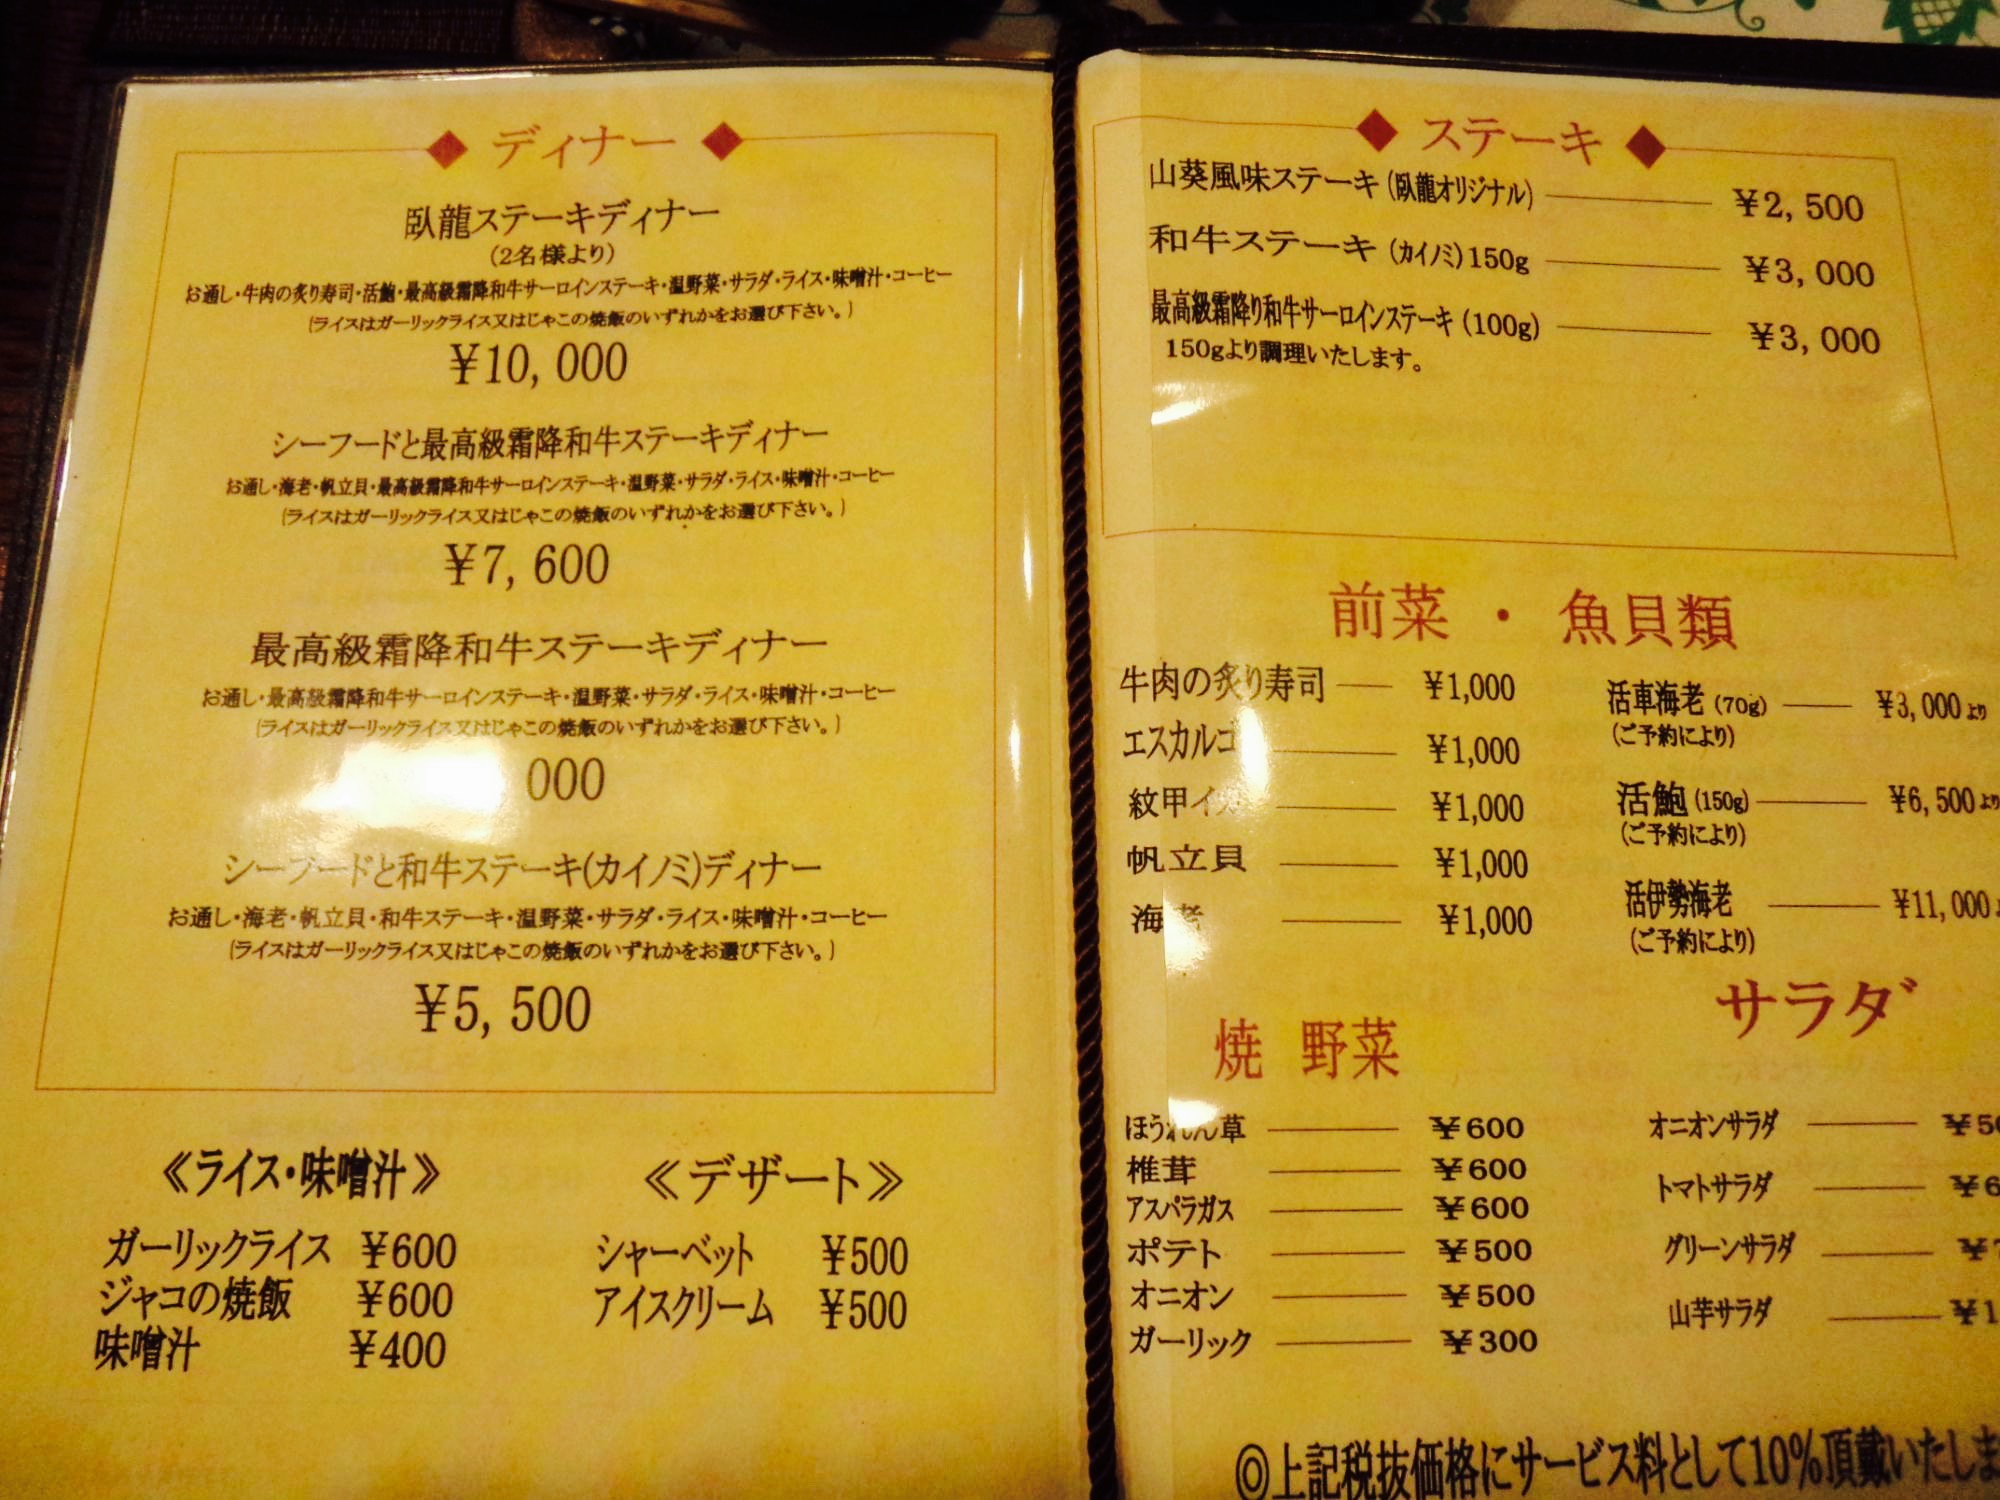 ディナー
臥龍ステーキディナー
(2名様より)
お通し・牛肉の炙り寿司・活鮑・最高級霜降和牛サーロインステーキ・温野菜・サラダ・ライス・味噌汁・コーヒー
(ライスはガーリックライス又はじゃこの焼飯のいずれかをお選び下さい。)
¥10,000
シーフードと最高級霜降和牛ステーキディナー
お通し・海老・帆立貝・最高級霜降和牛サーロインステーキ・温野菜・サラダ・ライス・味噌汁・コーヒー
(ライスはガーリックライス又はじゃこの焼飯のいずれかをお選び下さい。)
¥7,600
最高級霜降和牛ステーキディナー
お通し・最高級霜降和牛サーロインステーキ・温野菜・サラダ・ライス・味噌汁・コーヒー
(ライスはガーリックライス又はじゃこの焼飯のいずれかをお選び下さい。)
000
シーフードと和牛ステーキ(カイノミ)ディナー
お通し・海老・帆立貝・和牛ステーキ・温野菜・サラダ・ライス・味噌汁・コーヒー
(ライスはガーリックライス又はじゃこの焼飯のいずれかをお選び下さい。)
¥5,500
《ライス・味噌汁》
ガーリックライス ¥600
ジャコの焼飯 ¥600
味噌汁 ¥400
≪デザート≫
シャーベット ¥500
アイスクリーム ¥500
ステーキ
山葵風味ステーキ(臥龍オリジナル) ¥2,500
和牛ステーキ(カイノミ)150g ¥3,000
最高級霜降り和牛サーロインステーキ(100g) ¥3,000
150gより調理いたします。
前菜・魚貝類
牛肉の炙り寿司 ¥1,000
エスカルゴ ¥1,000
紋甲イカ ¥1,000
帆立貝 ¥1,000
海老 ¥1,000
活車海老(70g) ¥3,000より
(ご予約により)
活鮑(150g) ¥6,500より
(ご予約により)
活伊勢海老 ¥11,000
(ご予約により)
焼 野菜
ほうれん草 ¥600
椎茸 ¥600
アスパラガス ¥600
ポテト ¥500
オニオン ¥500
ガーリック ¥300
サラダ
オニオンサラダ ¥50
トマトサラダ ¥6
グリーンサラダ ¥7
山芋サラダ ¥1
◎上記税抜価格にサービス料として10%頂戴いたしま